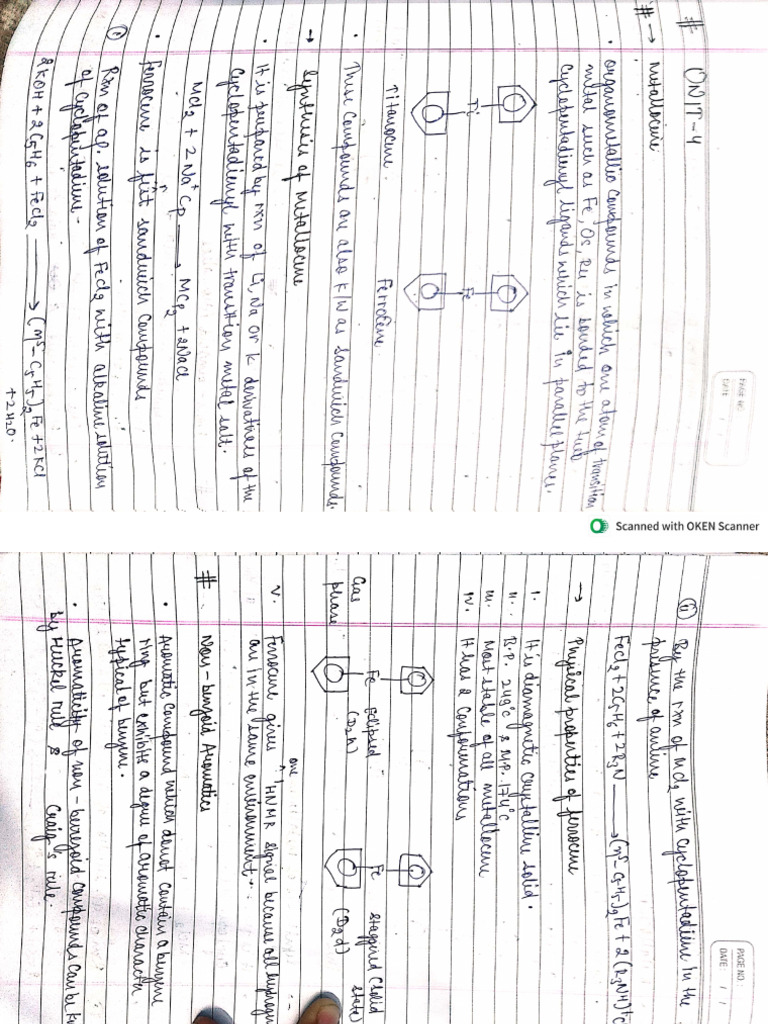 # UNIT-4
# → Metallocene
• Organometallic compounds in which one atom of transition
metal such as Fe, Os, Ru is bonded to the two
cyclopentadienyl ligands which lie in parallel planes.
Ti
Fe
Titanocene.
Ferrocene
• These compounds are also k/w as sandwich compounds.
→ Synthesis of Metallocene
• It is prepared by rxn of Li, Na or K derivatives of the
cyclopentadienyl with transition metal salt.
MCl2 + 2Na+Cp- → MCp2 + 2NaCl
• Ferrocene is first sandwich compounds
(i) Rxn of aq. solution of FeCl2 with alkaline solution
of cyclopentadiene.
2KOH + 2C5H6 + FeCl2 → (η5-C5H5)2Fe + 2KCl
+ 2H2O.
PAGE NO.
DATE
Scanned with OKEN Scanner
PAGE NO.
DATE / /
(ii) By the rxn of MCl2 with cyclopentadiene in the
presence of amine
FeCl2 + 2C5H6 + 2R3N → (η5-C5H5)2Fe + 2(R3NH)+C
→ Physical properties of ferrocene
i. It is diamagnetic crystalline solid.
ii. B.P. 249°C & M.P. 174°C
iii. Most stable of all metallocene
iv. It has 2 conformations
Gas
phase
Fe
Eclipsed
(D2h)
Fe
Staggered (Solid
state)
(D2d)
v. Ferrocene gives one 1HNMR signal because all hydrogen
are in the same environment.
# Non-benzoid Aromatics
• Aromatic compound which do not contain a benzene
ring but exhibits a degree of aromatic character
typical of benzene.
• Aromaticity of non-benzenoid compounds can be k
by Huckel rule & Craig's rule.